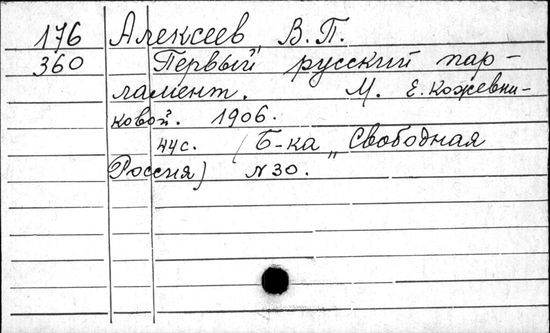 176 Алексеев В. П.
360 Первый русский пар-
ламент. М. Е. Кожевни-
ковой. 1906.
44с. (Б-ка "Свободная
Россия) N 30.